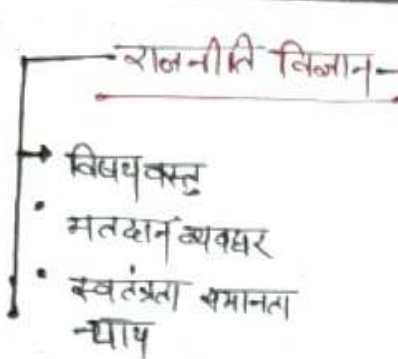 राजनीति विज्ञान
विषयवस्तु
मतदान व्यवहार
स्वतंत्रता समानता
न्याय